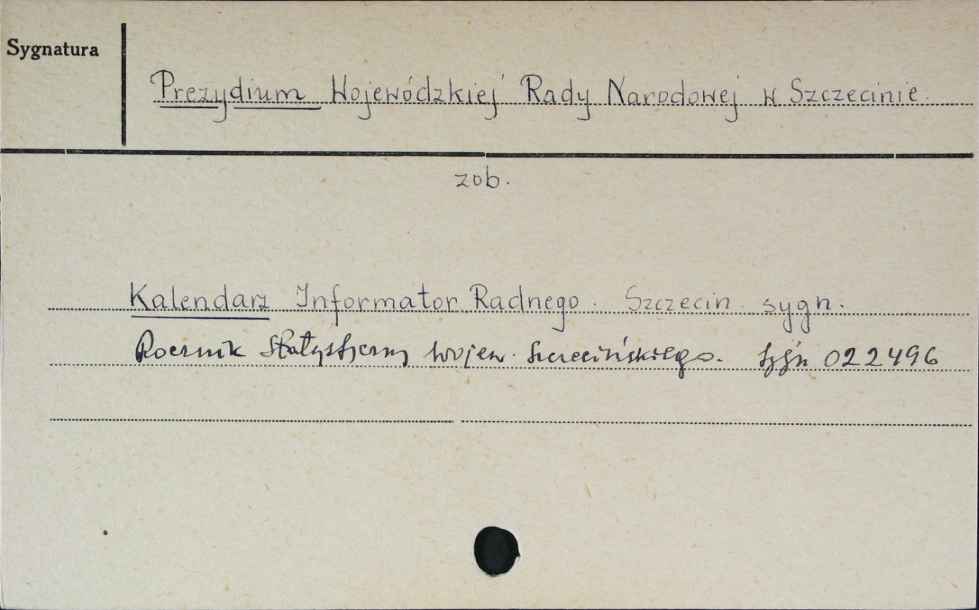 Sygnatura
Prezydium Wojewódzkiej Rady Narodowej w Szczecinie.
zob.
Kalendarz Informator Radnego. Szczecin. sygn.
Rocznik Statystyczny wojew. szczecińskiego. sygn 022496